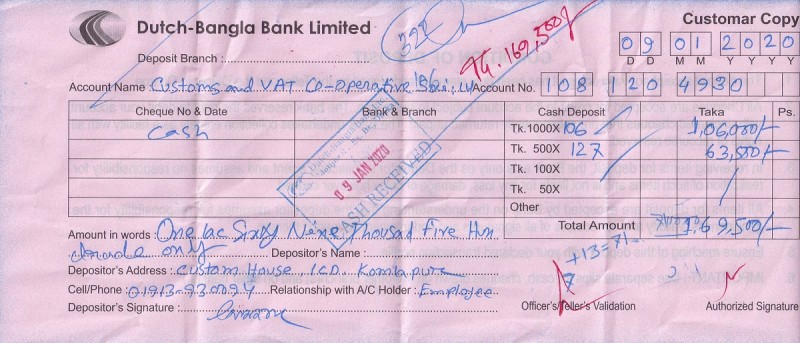 Dutch-Bangla Bank Limited
Customar Copy
Tk. 169,500/-
Deposit Branch :
09 01 2020
D D M M Y Y Y Y
Account Name : Customs and VAT Co-operative Account No. 108 120 4930
Cheque No & Date Bank & Branch Cash Deposit Taka Ps.
Cash Tk. 1000X 106 1,06,000/-
Tk. 500X 127 63,500/-
Tk. 100X
Tk. 50X
Other
09 JAN 2020
CASH RECEIVED
Total Amount 1,69,500/-
Amount in words : One lac Sixty Nine Thousand Five Hun
only Depositor's Name :
Depositor's Address : Custom House, ICD, Kamlapur
Cell/Phone : Relationship with A/C Holder : Employee
Depositor's Signature :
Officer's/Teller's Validation Authorized Signature